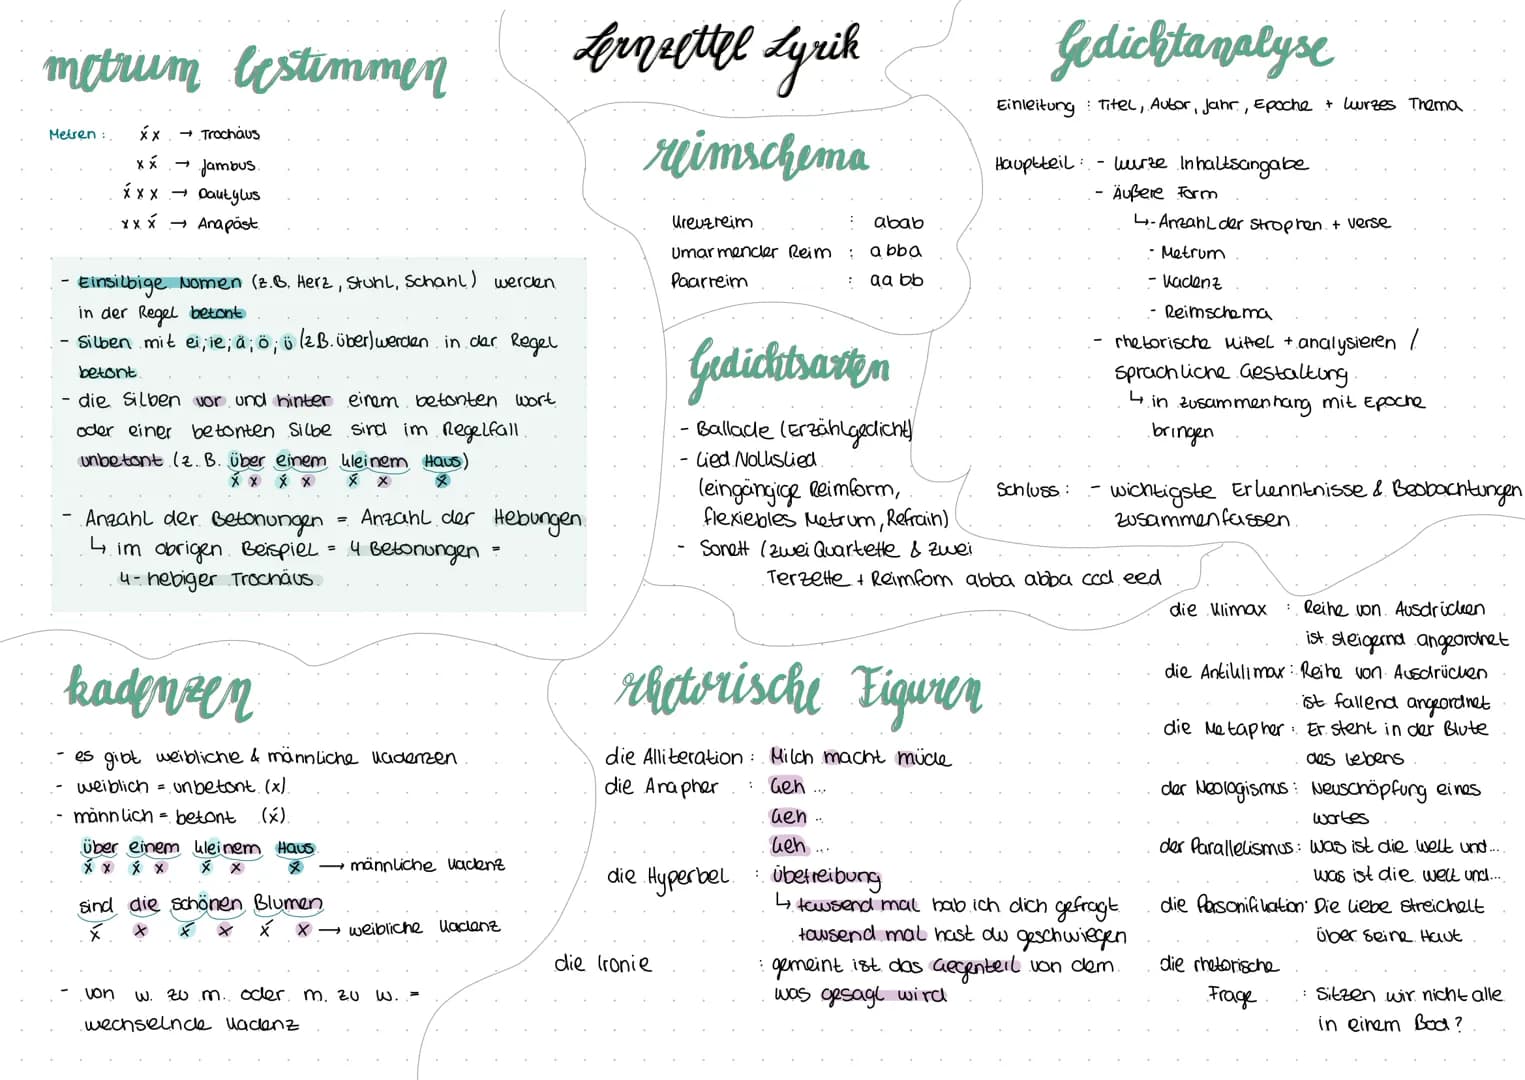 Lernzettel Lyrik
metrum bestimmen
Metren : x́ x → Trochäus
x x́ → Jambus
x́ x x → Dautylus
x x x́ → Anapäst
- Einsilbige Nomen (z.B. Herz, Stuhl, Schahl) werden
in der Regel betont
- Silben mit ei; ie; ä; ö; ü (z.B. über) werden in der Regel
betont
- die Silben vor und hinter einem betonten Wort
oder einer betonten Silbe sind im Regelfall
unbetont (z. B. über einem kleinem Haus)
x́ x x́ x x́ x x́
- Anzahl der Betonungen = Anzahl der Hebungen
↳ im obrigen Beispiel = 4 Betonungen =
4-hebiger Trochäus
reimschema
Kreuzreim : abab
Umarmender Reim : abba
Paarreim : aa bb
Gedichtsarten
- Ballade (Erzählgedicht)
- Lied Nolkslied
(eingängige Reimform,
flexiebles Metrum, Refrain)
- Sonett (zwei Quartette & zwei
Terzette + Reimfom abba abba ccd eed
Gedichtanalyse
Einleitung : Titel, Autor, Jahr, Epoche + kurzes Thema
Hauptteil : - kurze Inhaltsangabe
- Äußere Form
↳ - Anzahl der Strophen + Verse
- Metrum
- Kadenz
- Reimschema
- rhetorische Mittel + analysieren /
sprachliche Gestaltung
↳ in zusammenhang mit Epoche
bringen
Schluss : - wichtigste Erkenntnisse & Beobachtungen
zusammenfassen
kadenzen
- es gibt weibliche & männliche Kadenzen
- weiblich = unbetont (x)
- männlich = betont (x́)
über einem kleinem Haus
x́ x x́ x x́ x x́ → männliche Kadenz
sind die schönen Blumen
x́ x x́ x x́ x → weibliche Kadenz
- von w. zu m. oder m. zu w. =
wechselnde Kadenz
rhetorische Figuren
die Alliteration : Milch macht müde
die Anapher : Geh ...
Geh ..
Geh ...
die Hyperbel : Übetreibung
↳ tausend mal hab ich dich gefragt
tausend mal hast du geschwiegen
die Ironie : gemeint ist das Gegenteil von dem
was gesagt wird
die Klimax : Reihe von Ausdrücken
ist steigernd angeordnet
die Antiklimax : Reihe von Ausdrücken
ist fallend angeordnet
die Metapher : Er steht in der Blute
des Lebens
der Neologismus : Neuschöpfung eines
wortes
der Parallelismus : Was ist die welt und...
was ist die welt und...
die Personifikation : Die Liebe streichelt
über seine Haut
die rhetorische
Frage : Sitzen wir nicht alle
in einem Boot?